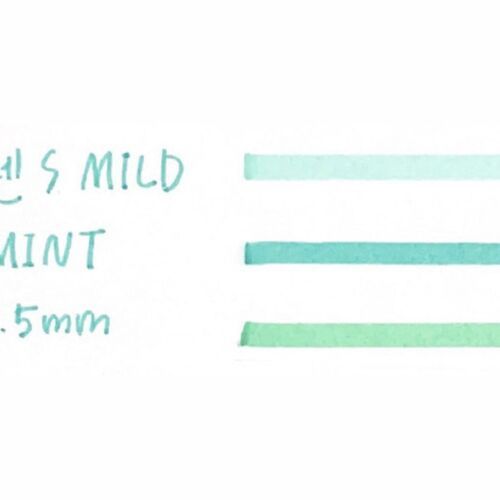 S MILD
MINT
.5mm